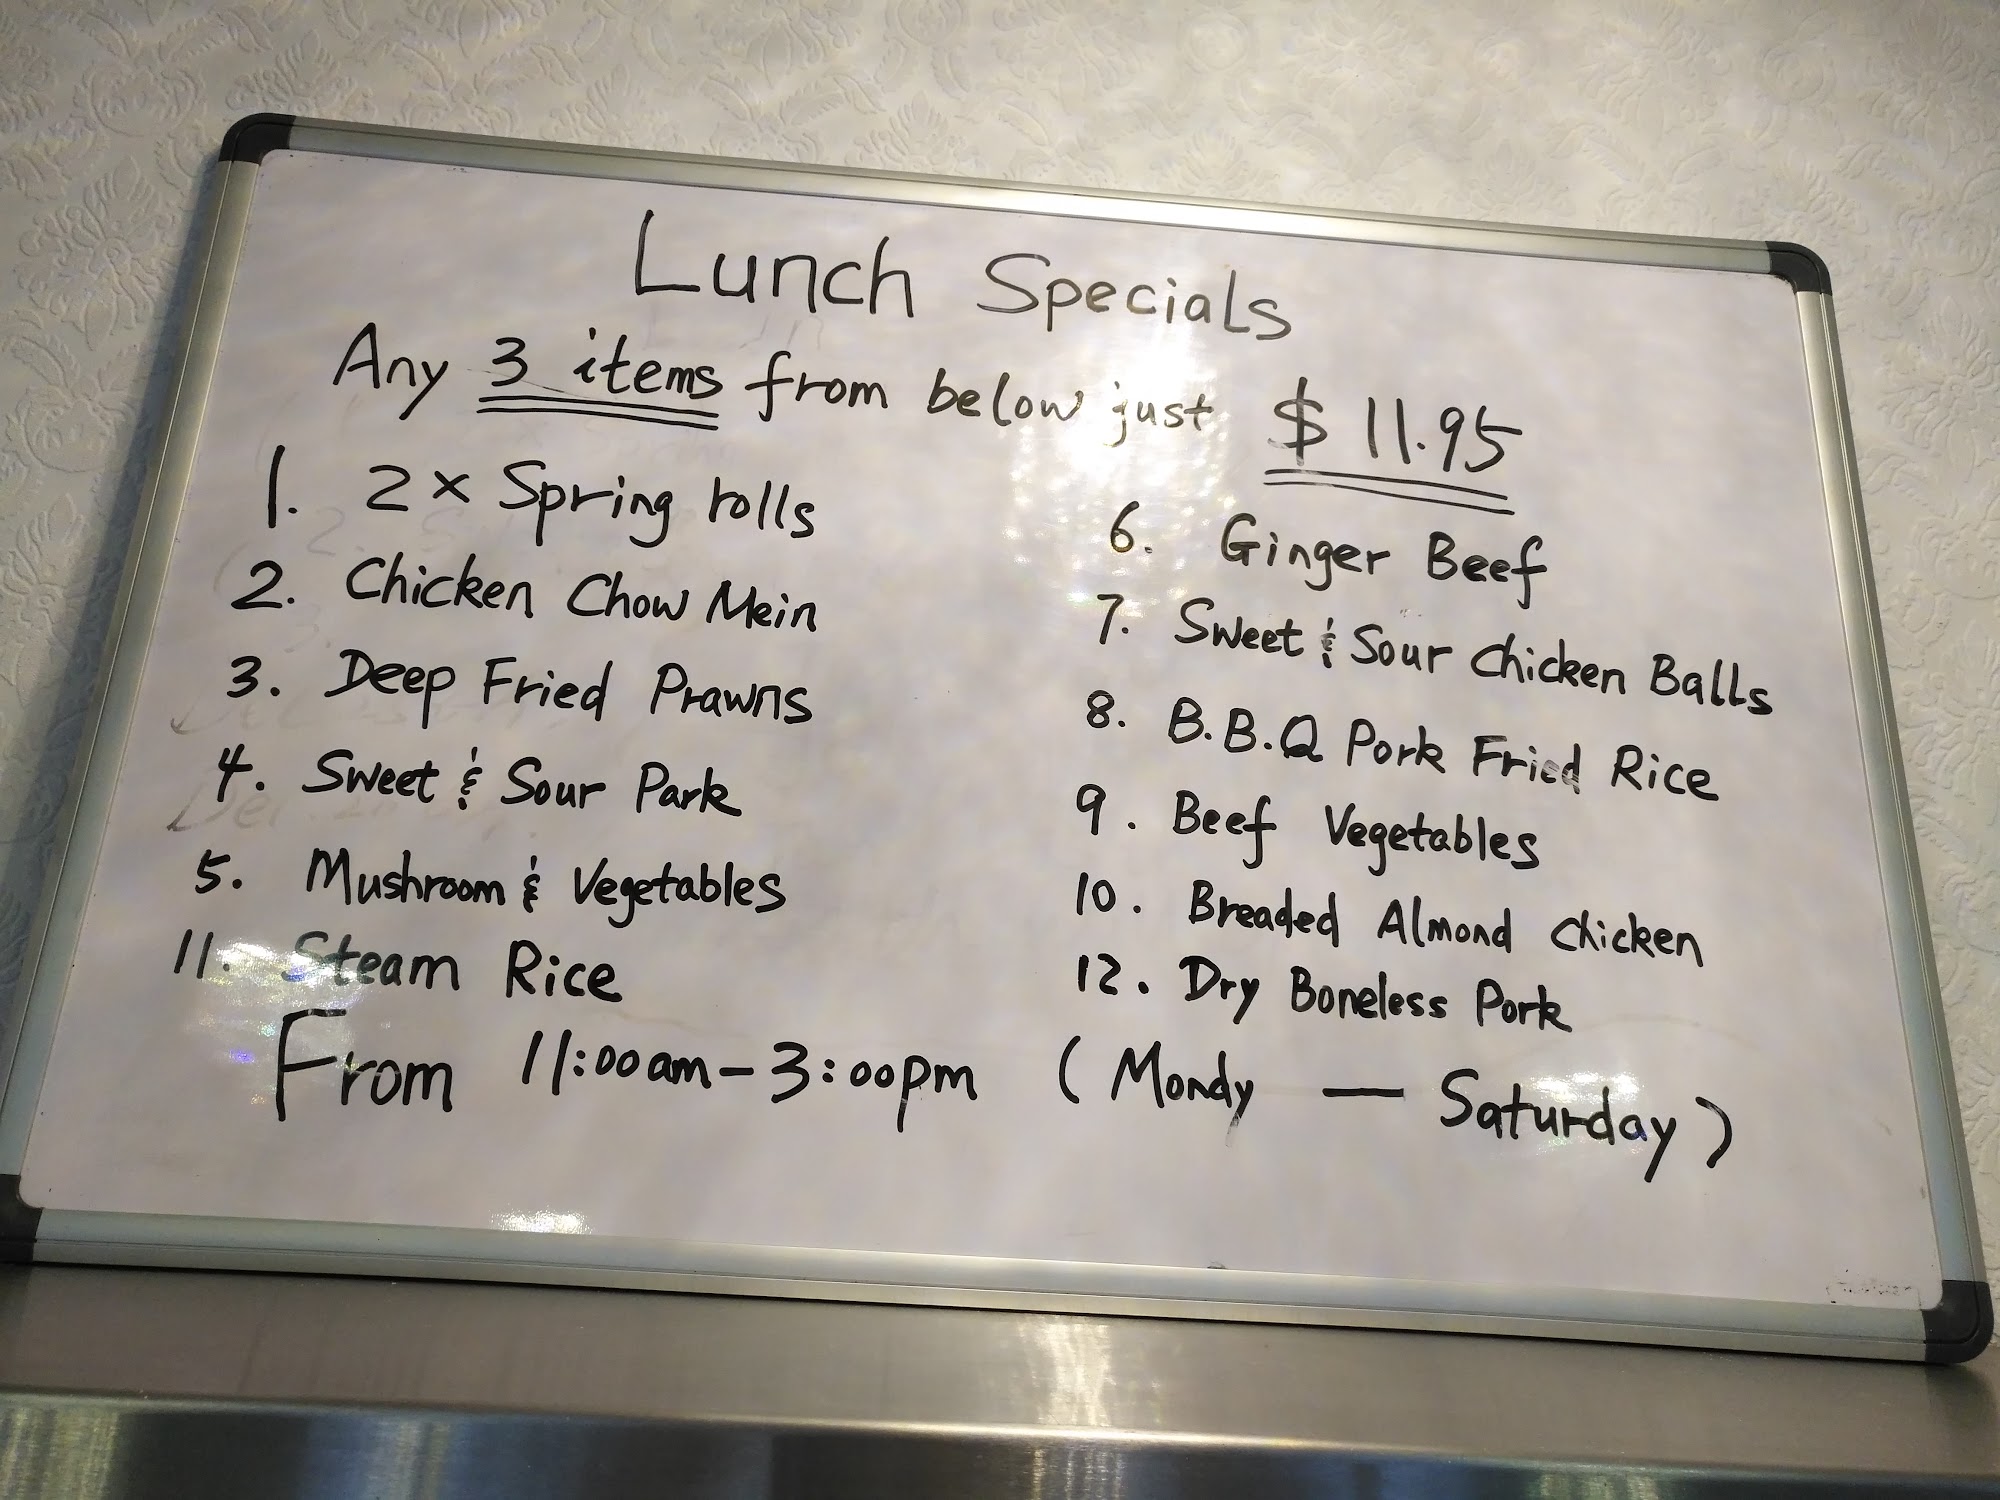 Lunch Specials
Any 3 items from below just $ 11.95
1. 2 x Spring rolls
2. Chicken Chow Mein
3. Deep Fried Prawns
4. Sweet & Sour Park
5. Mushroom & Vegetables
11. Steam Rice
6. Ginger Beef
7. Sweet & Sour Chicken Balls
8. B.B.Q Pork Fried Rice
9. Beef Vegetables
10. Breaded Almond Chicken
12. Dry Boneless Pork
From 11:00am-3:00pm (Mondy — Saturday)